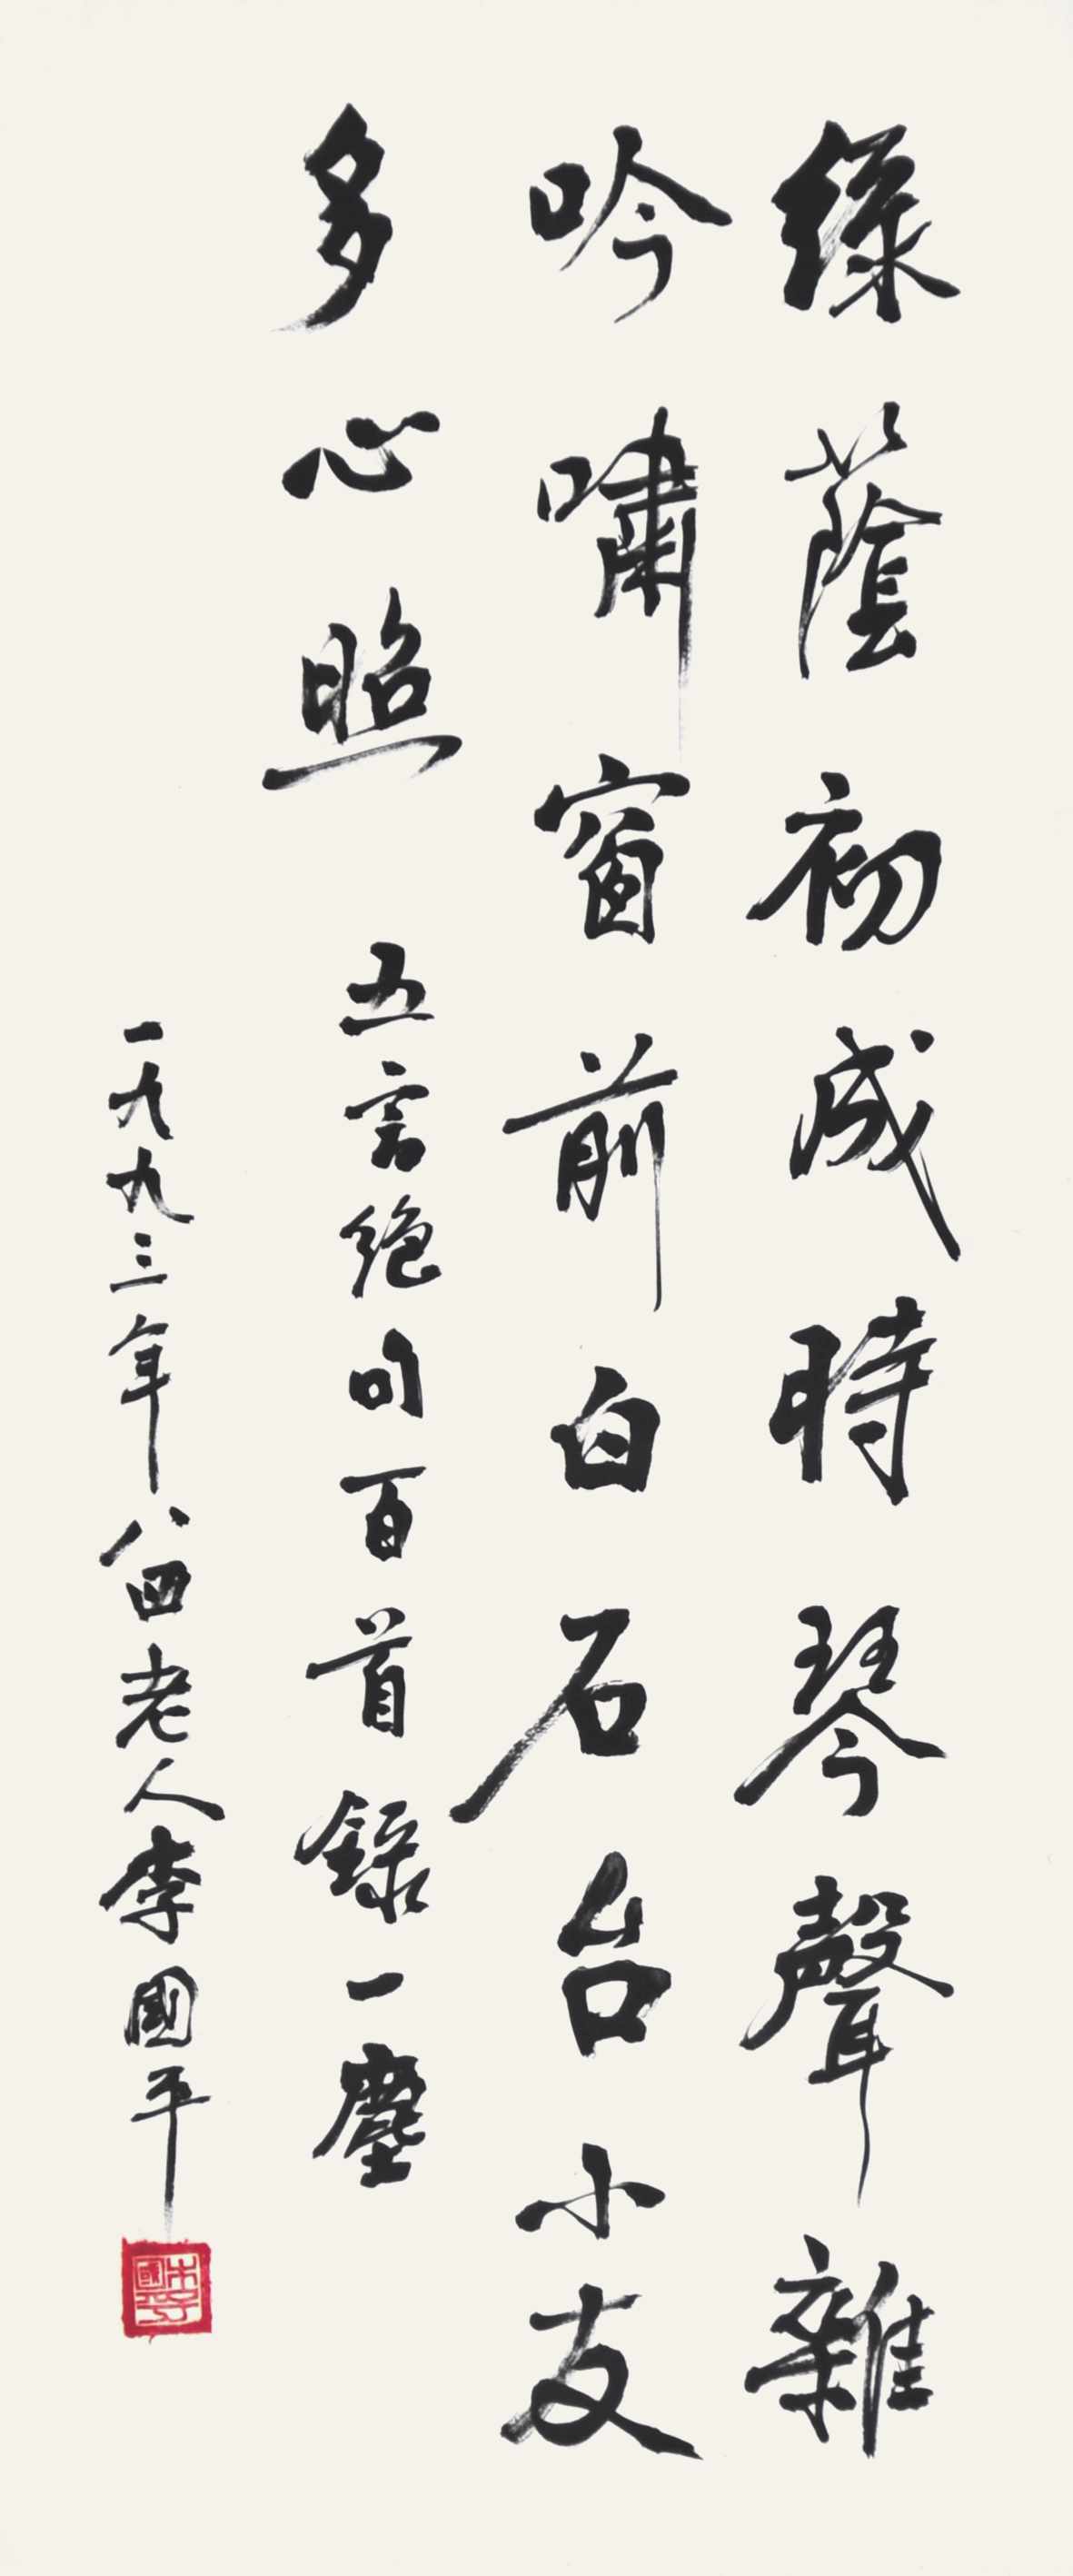 綠蔭初成時琴聲雜
吟嘯窗前白石台小友
多心照 五言絶句百首錄一塵
一九九三年八四老人李國平
李國平